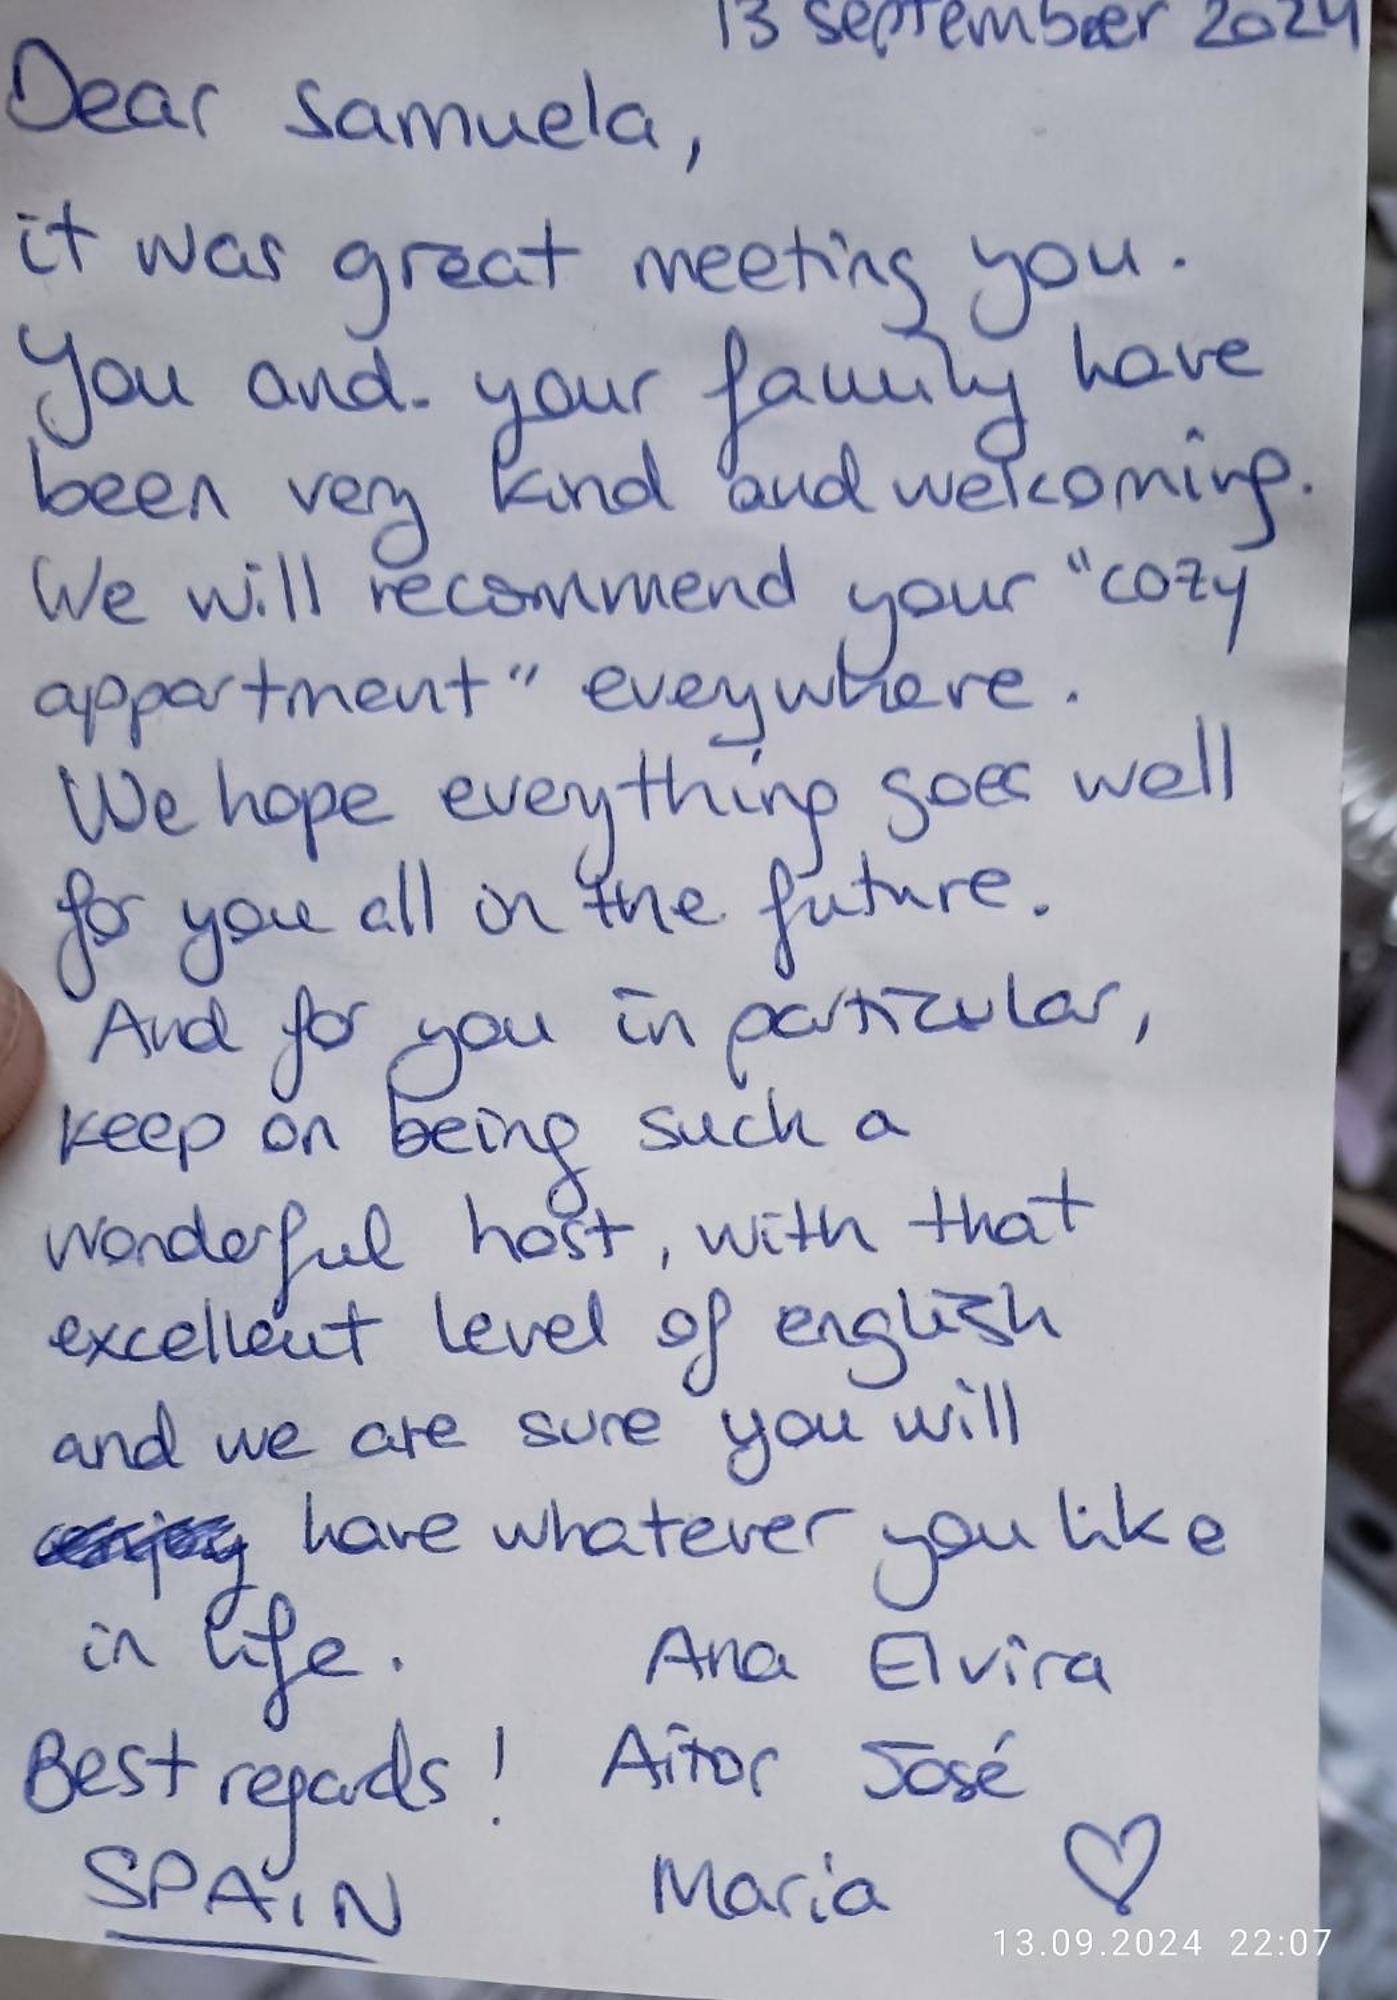 13 september 2024
Dear Samuela,
it was great meeting you.
You and your family have
been very kind and welcoming.
We will recommend your "cozy
appartment" eveywhere.
We hope eveything goes well
for you all in the future.
And for you in particular,
keep on being such a
wonderful host, with that
excellent level of english
and we are sure you will
have whatever you like
in life. Ana Elvira
Best regards! Aitor José
SPAIN Maria ♡
13.09.2024 22:07